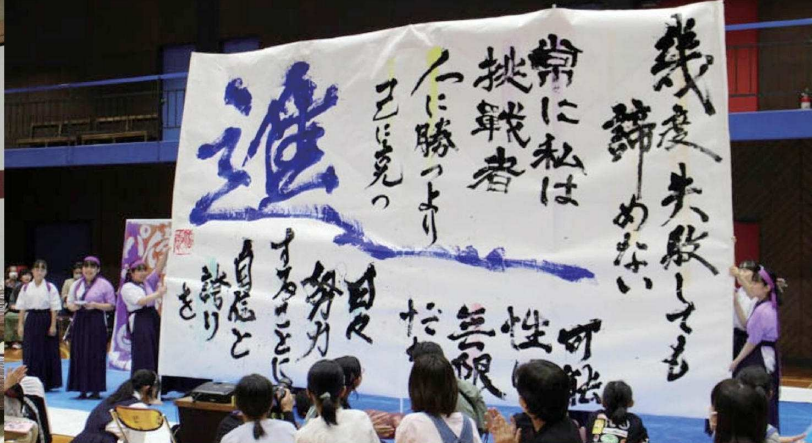 幾度失敗しても
諦めない
常に私は
挑戦者
人に勝つより
己に克つ
進
可能
性
無限
だ
日々
努力
することに
自信と
誇りを